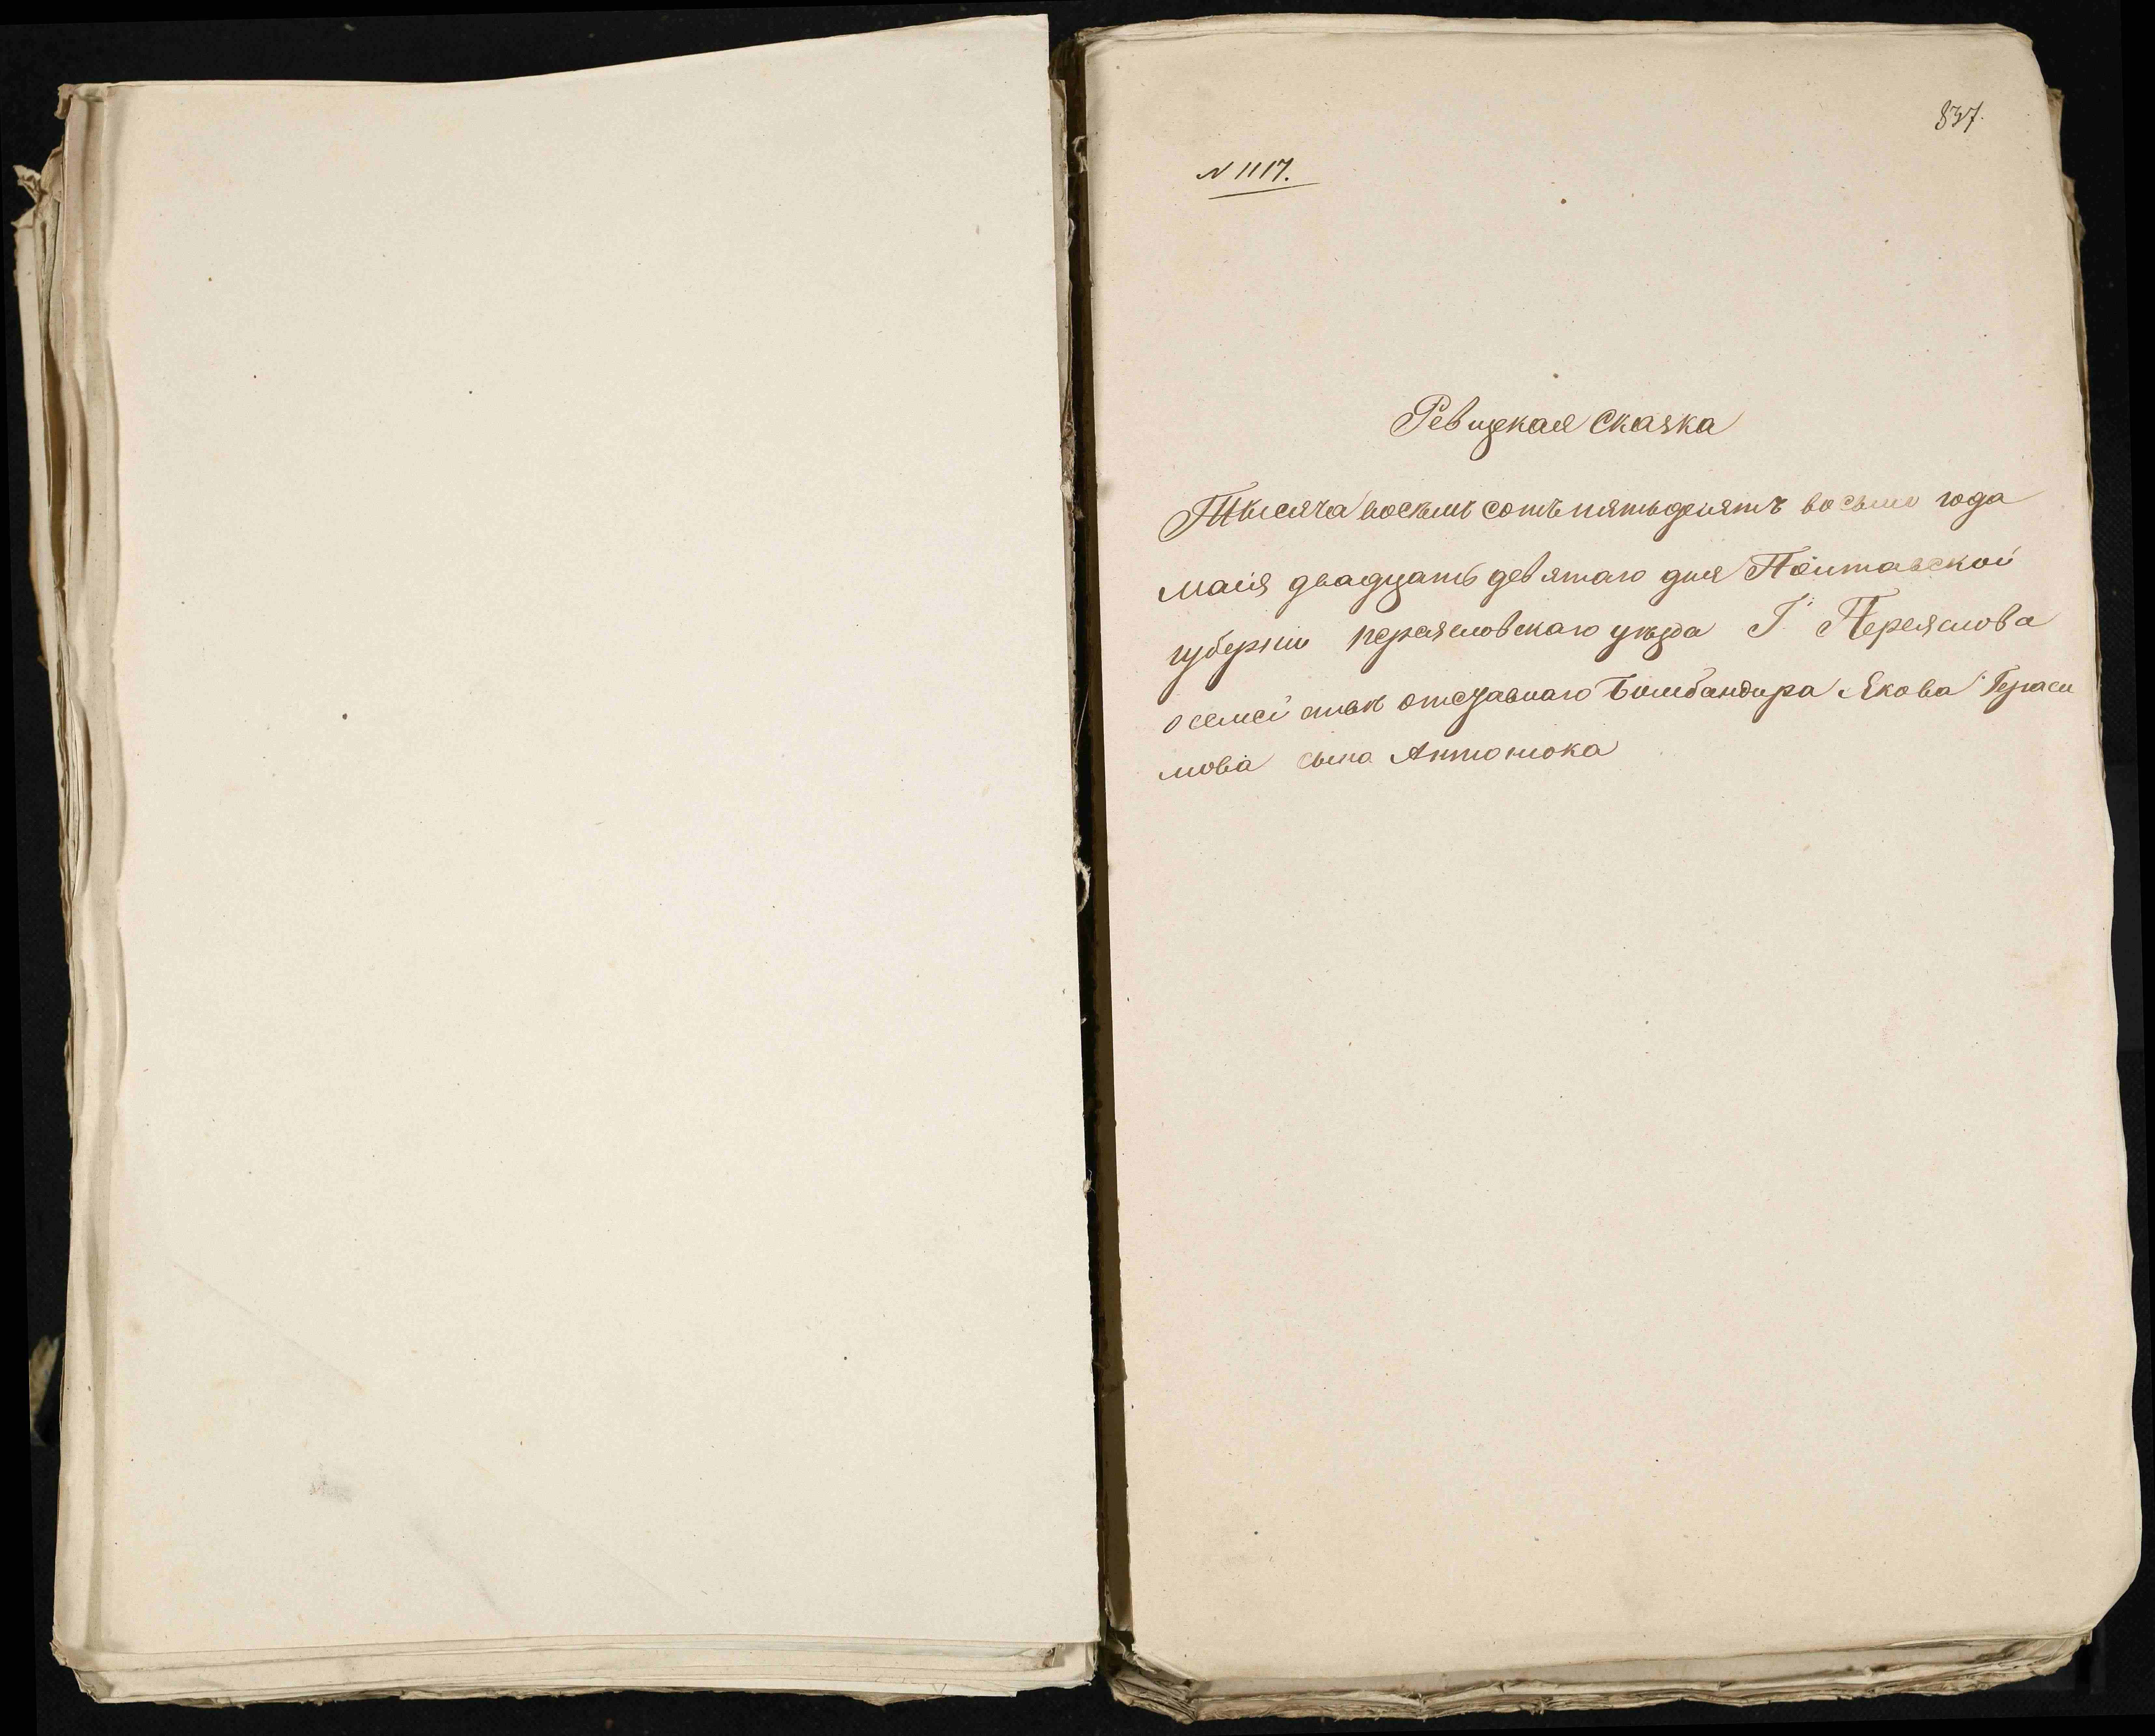 837.
N 1117.
Ревизкая Сказка
Тысяча восемь сотъ пятьдесятъ восьмо года
маія двадцать девятаго дня Полтавской
губерніи переясловскаго уезда Г. Переяслова
о семействѣ отставнаго Бомбандира Якова Гераси
мова сына Антонюка